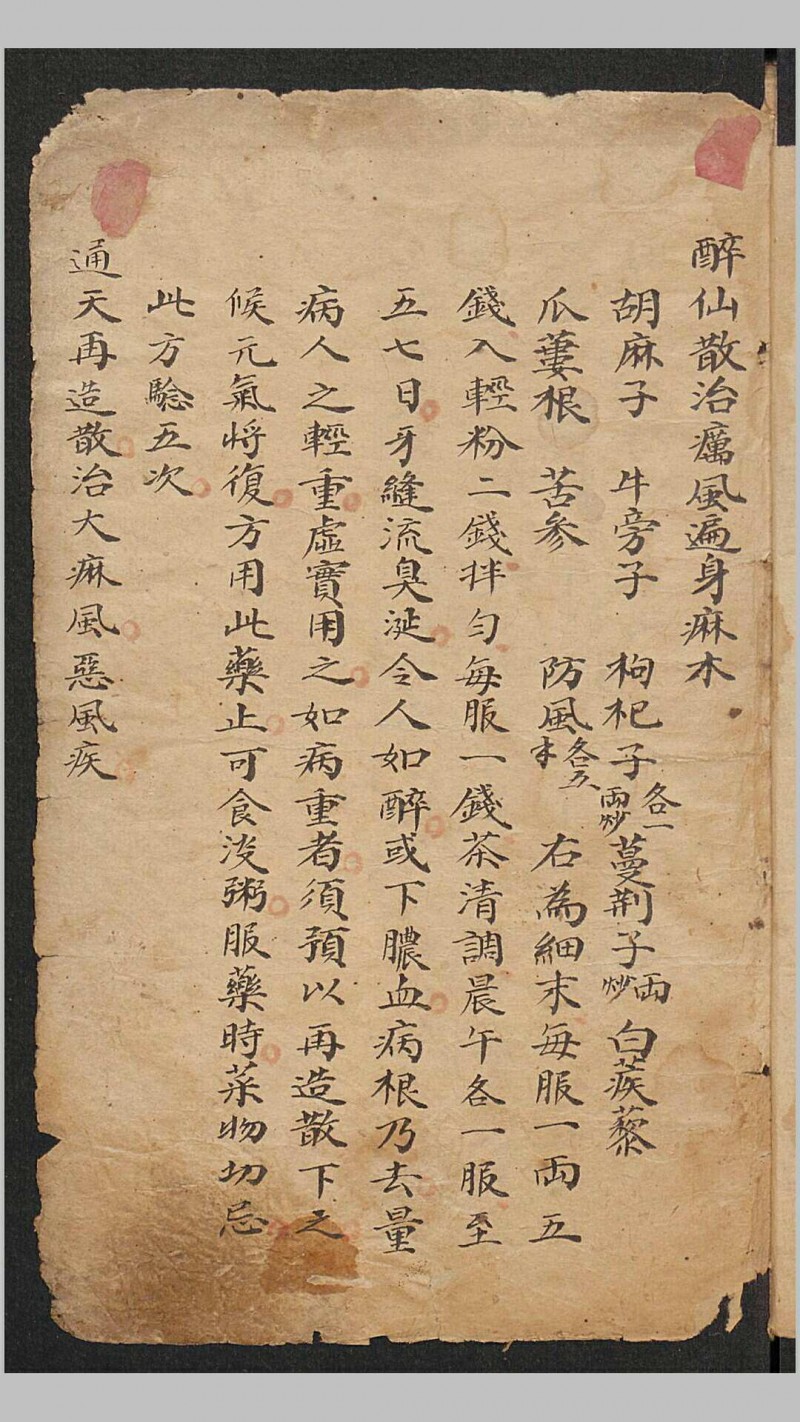 醉仙散治癘風遍身麻木
胡麻子 牛旁子 枸杞子各一兩炒蔓荆子兩炒 白蒺藜
瓜蔞根 苦参 防風各五 右為細末每服一兩五
錢入輕粉二錢拌匀每服一錢茶清調晨午各一服至
五七日牙縫流臭涎令人如醉或下膿血病根乃去量
病人之輕重虛實用之如病重者須預以再造散下之
候元氣将復方用此藥止可食淡粥服藥時菜物切忌
此方驗五次
通天再造散治大痲風惡風疾